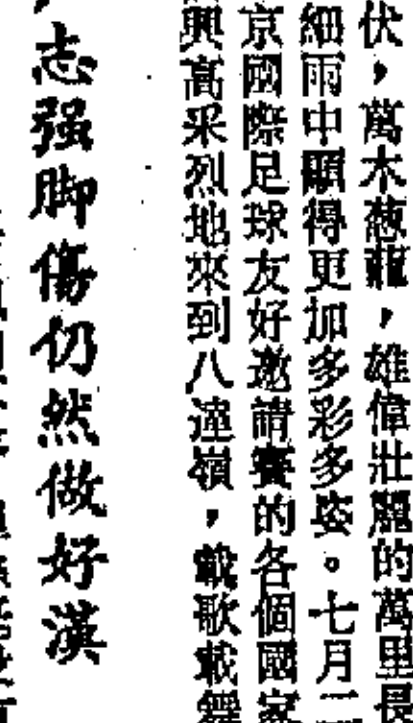 伏，萬木葱蘢，雄偉壯麗的萬里長
細雨中顯得更加多彩多姿。七月二
京國際足球友好邀請賽的各個國家
興高采烈地來到八達嶺，載歌載舞
志强脚傷仍然做好漢